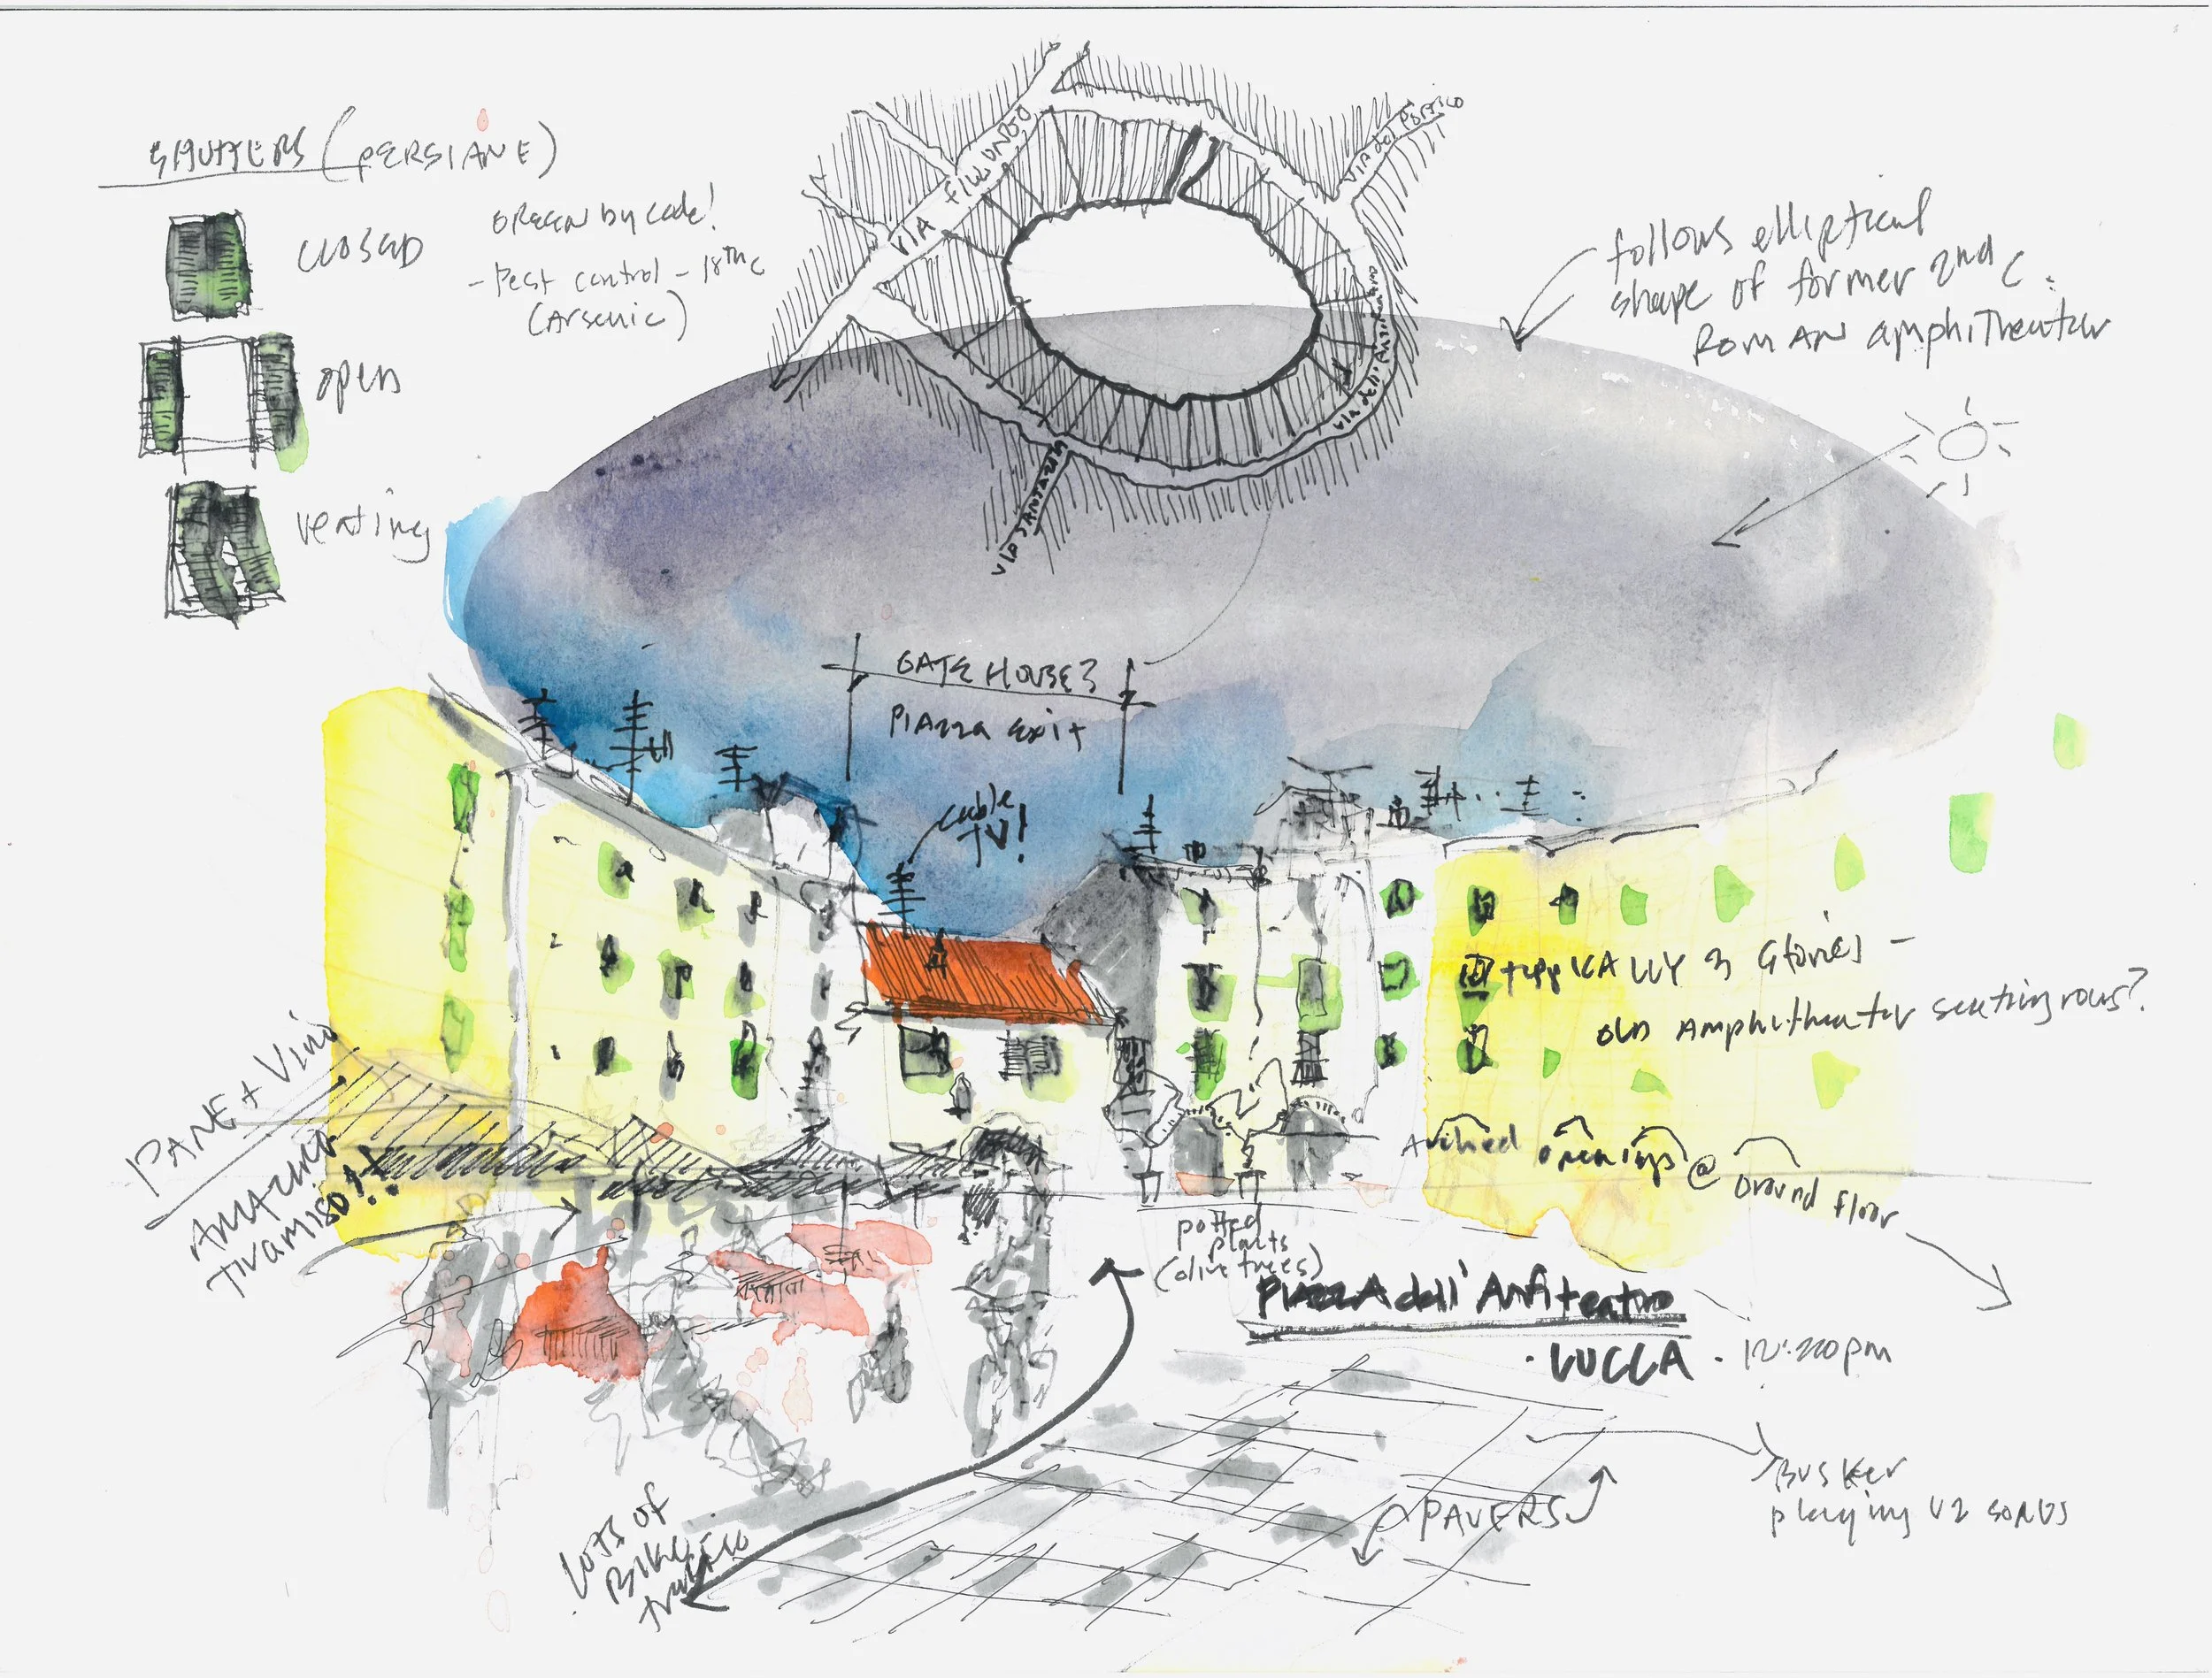 SHUTTERS (PERSIANE)
CLOSED
open
venting
GREEN by code!
- Pest control - 18TH C
(Arsenic)
VIA FILLUNGO
VIA del PORTICO
VIA dell' ANFITEATRO
VIA SANTA ZITA
follows elliptical
shape of former 2nd c.
ROMAN amphitheater
GATE HOUSE?
PIAZZA exit
cable
TV!
typically 3 stories -
old Amphitheater seating rows?
Arched openings @ Ground floor
PANE + Vini
AMAZING
TIRAMISU!!
potted
plants
(olive trees)
PIAZZA dell' Anfiteatro
· LUCCA · 12:20pm
Busker
playing U2 songs
PAVERS
Lots of
BIKE
traffic